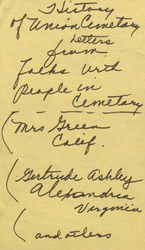 History
of Union Cemetary
Letters
from
Folks with
People in
Cemetary
(Mrs Green
Calif.
(Gertrude Ashley
Alexandria
Virginia
(and others